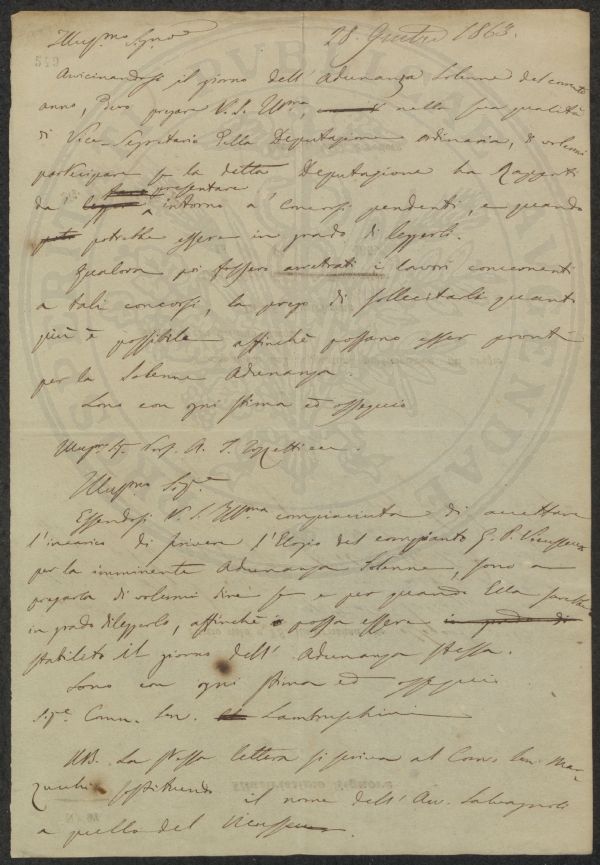 Illus.mo Sig.re
28. Giugno 1863.
Avvicinandosi il giorno dell'Adunanza Solenne del corrente
anno, devo pregare V. S. Ill.ma, nella sua qualità
di Vice-Segretario della Deputazione ordinaria, di volermi
partecipare se la detta Deputazione ha Rapporti
presentare
da intorno a' Concorsi pendenti, e quando
potrebbe essere in grado di leggerli.
Qualora poi fossero arretrati i lavori concernenti
a tali concorsi, la prego di sollecitarli quanto
più è possibile affinchè possano esser pronti
per la Solenne Adunanza.
Sono con ogni stima ed ossequio
Prof. A. T. Tozzetti
Illus.mo Sig.re
Essendosi V. S. Ill.ma compiaciuta di accettare
l'incarico di scrivere l'Elogio del compianto G. P. Vieusseux
per la imminente Adunanza Solenne, sono a
pregarla di volermi dire se e per quando Ella sarebbe
in grado di leggerlo, affinchè possa essere in grado di
stabilito il giorno dell'Adunanza stessa.
Sono con ogni stima ed ossequio
Sig.e Comm. Sen. Lambruschini
NB. La stessa lettera si scriva al Comm. Sen. Mar-
zucchi sostituendo il nome dell'Avv. Salvagnoli
a quello del Vieusseux.